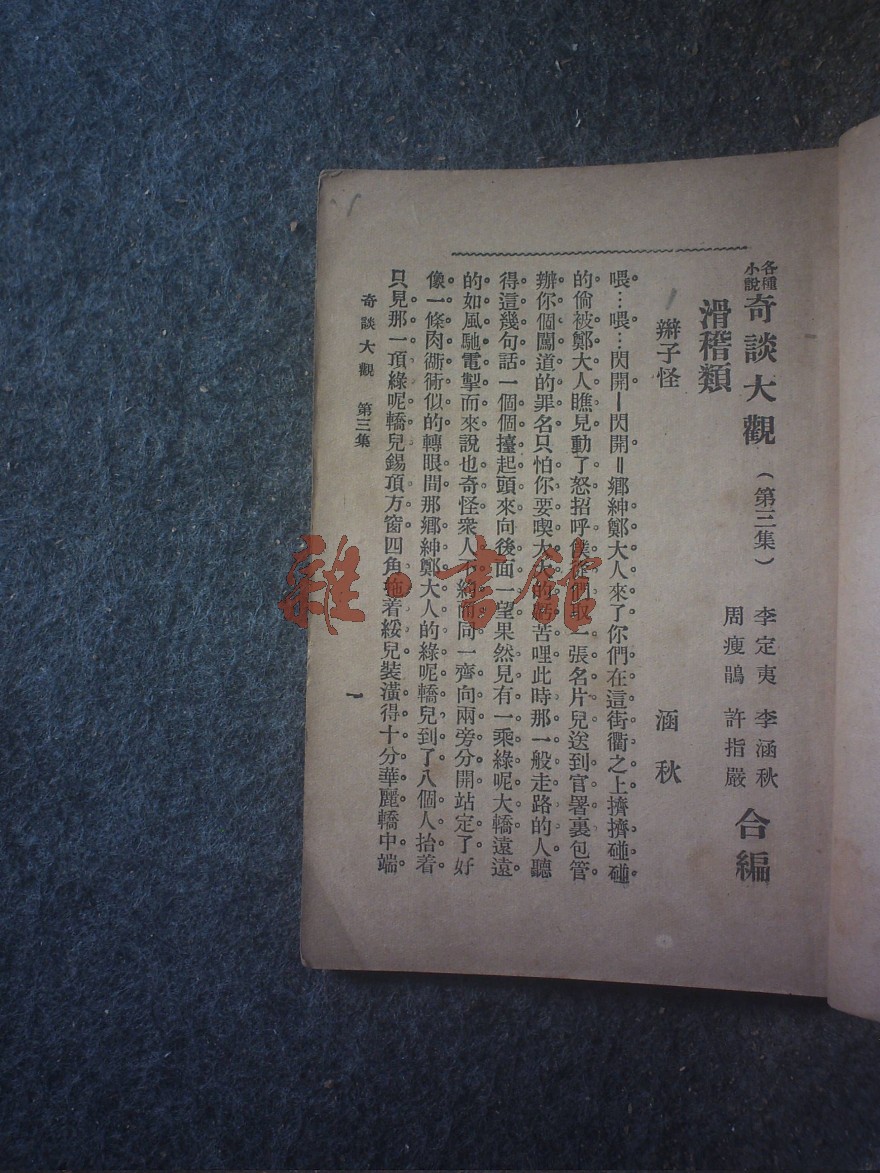 各種小說奇談大觀(第三集) 李定夷 李涵秋 周瘦鵑 許指嚴 合編
滑稽類
辮子怪 涵秋
喂。…喂。…閃開｜閃開‖鄉紳鄭大人來了你們在這街衢之上擠擠碰碰。
的。倘被鄭大人瞧見動了怒招呼僕從們取一張名片兒送到官署裏包管
辦你個闖道的罪名只怕你要喫大大的苦哩此時那一般走路的人聽
得這幾句話一個個擡起頭來向後面一望果然見有一乘綠呢大轎遠遠
的如風馳電掣而來說也奇怪衆人不約而同一齊向兩旁分開站定了好
像一條肉衚衕似的轉眼間那鄉紳鄭大人的綠呢轎兒到了八個人抬着
只見那一頂綠呢轎兒錫頂方窗四角拖着綏兒裝潢得十分華麗轎中端
奇談大觀 第三集
一
雜·書館